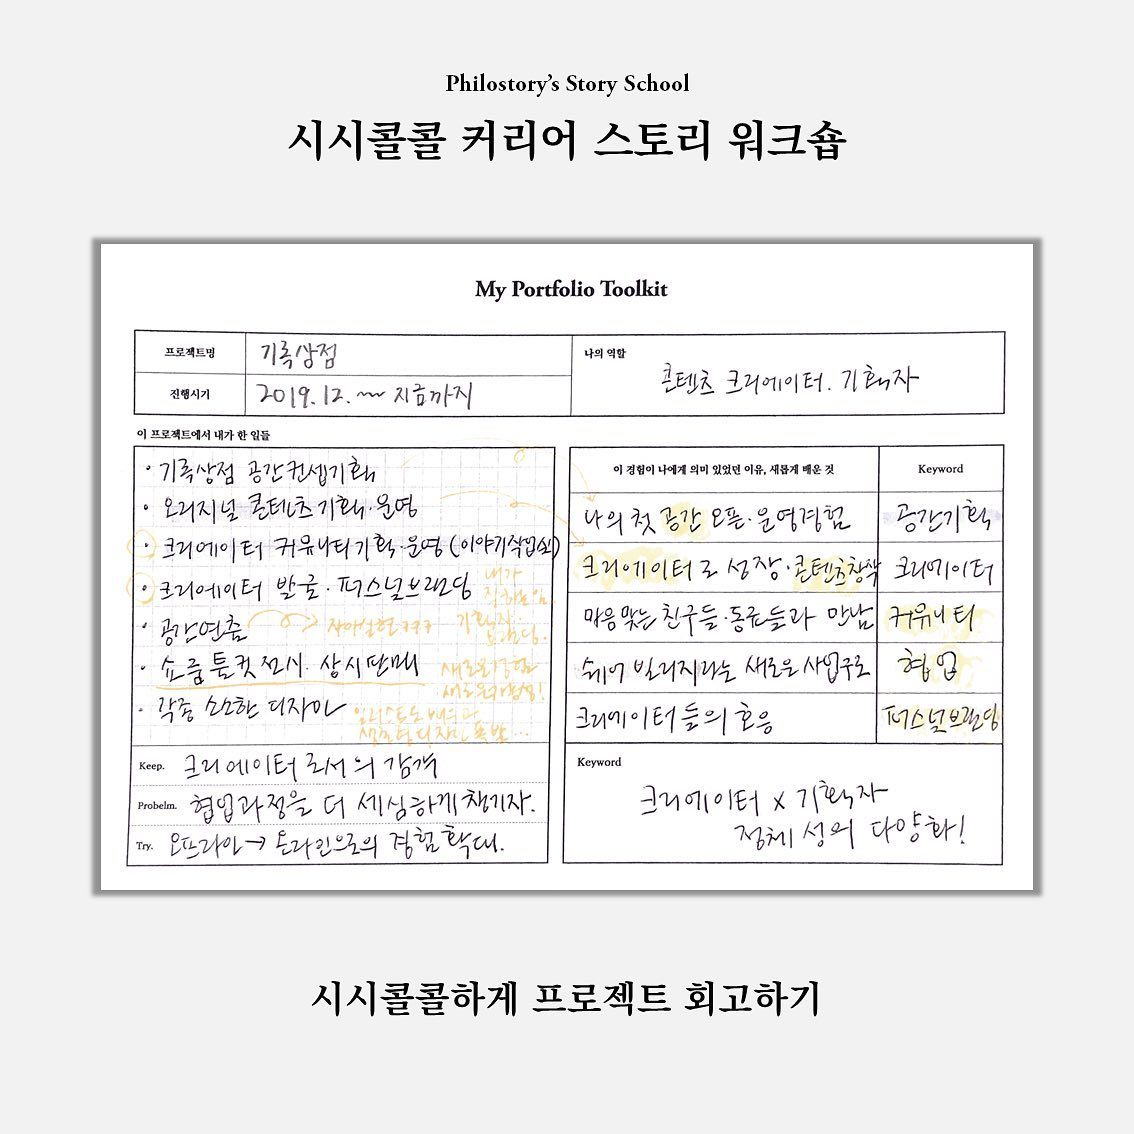 Philostory's Story School
시시콜콜 커리어 스토리 워크숍
My Portfolio Toolkit
프로젝트명 기록상점
나의 역할 콘텐츠 크리에이터. 기획자
진행시기 2019.12. ~ 지금까지
이 프로젝트에서 내가 한 일들
· 기록상점 공간컨셉기획
· 오리지널 콘텐츠기획·운영
· 크리에이터 커뮤니티기획·운영 (이야기작업실)
· 크리에이터 발굴·퍼스널브랜딩
내가
· 공간연출
자아실현ㅋㅋㅋ
기획자.
· 쇼룸 툴킷 전시·상시판매
새로운경험
새로운
· 각종 소소한 디자인
Keep. 크리에이터로서의 감각
Probelm. 협업과정을 더 세심하게 챙기자.
Try. 오프라인 → 온라인으로의 경험 확대.
이 경험이 나에게 의미 있었던 이유, 새롭게 배운 것 Keyword
나의 첫 공간 오픈·운영경험 공간기획
크리에이터로 성장·콘텐츠창작 크리에이터
마음맞는 친구들·동료들과 만남 커뮤니티
쉐어 빌리지라는 새로운 사업구조 협업
크리에이터들의 호응 퍼스널브랜딩
Keyword
크리에이터 x 기획자
정체성의 다양화!
시시콜콜하게 프로젝트 회고하기